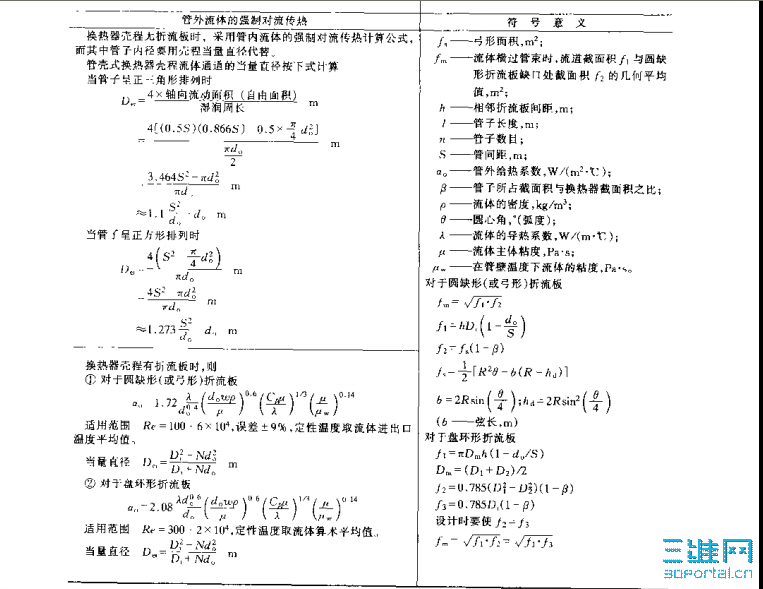 管外流体的强制对流传热
换热器壳程无折流板时，采用管内流体的强制对流传热计算公式，
而其中管子内径要用壳程当量直径代替。
管壳式换热器壳程流体通道的当量直径按下式计算
当管子呈正三角形排列时
De=4×轴向流动面积（自由面积）/湿润周长 m
=4[(0.5S)(0.866S) 0.5×π/4 do²]/(πdo/2) m
3.464S²-πdo²/πd m
≈1.1 S²/do - do m
当管子呈正方形排列时
De=4(S² π/4 do²)/πdo m
4S² πdo²/πdo m
≈1.273 S²/do do m
换热器壳程有折流板时，则
① 对于圆缺形(或弓形)折流板
αo 1.72 λ/do^0.4 (dowρ/μ)^0.6 (Cpμ/λ)^1/3 (μ/μw)^0.14
适用范围 Re=100-6×10⁴，误差±9%，定性温度取流体进出口
温度平均值。
当量直径 De=Di²-Ndo²/Di+Ndo m
② 对于盘环形折流板
αo=2.08 λdo^0.6/do (dowρ/μ)^0.6 (Cpμ/λ)^1/3 (μ/μw)^0.14
适用范围 Re=300-2×10⁴，定性温度取流体算术平均值。
当量直径 De=Di²-Ndo²/Di+Ndo m
符号意义
fs——弓形面积，m²；
fm——流体横过管束时，流道截面积 f1 与圆缺
形折流板缺口处截面积 f2 的几何平均
值，m²；
h——相邻折流板间距，m；
l——管子长度，m；
n——管子数目；
S——管间距，m；
αo——管外给热系数，W/(m²·℃)；
β——管子所占截面积与换热器截面积之比；
ρ——流体的密度，kg/m³；
θ——圆心角，°(弧度)；
λ——流体的导热系数，W/(m·℃)；
μ——流体主体粘度，Pa·s；
μw——在管壁温度下流体的粘度，Pa·s。
对于圆缺形(或弓形)折流板
fm=√f1·f2
f1=hDi(1-do/S)
f2=fs(1-β)
fs=1/2[R²θ-b(R-hd)]
b=2Rsin(θ/4)；hd=2Rsin²(θ/4)
(b——弦长，m)
对于盘环形折流板
f1=πDmh(1-do/S)
Dm=(D1+D2)/2
f2=0.785(Di²-D2²)(1-β)
f3=0.785D1(1-β)
设计时要使 f2=f3
fm=√f1·f2=√f1·f3
三维网
3Dportal.cn